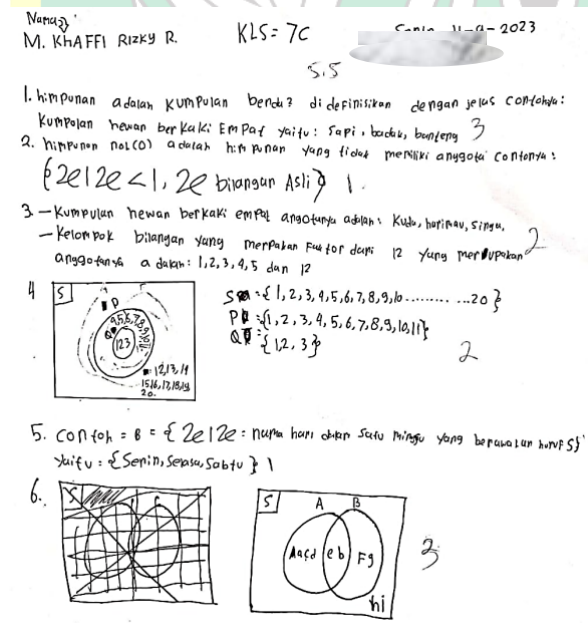 Nama :
M. KHAFFI RIZKY R. KLS = 7C Senin 11-9-2023
5.5
1. himpunan adalah kumpulan benda² didefinisikan dengan jelas contohnya :
Kumpolan hewan berkaki Empat yaitu : Sapi, badak, banteng 3
2. himpunan nol (0) adalah himpunan yang tidak memiliki anggota contonya :
{2e|2e<1, 2e bilangan Asli} 1
3 - Kumpulan hewan berkaki empat angotanya adalah : Kuda, harimau, singa,
- Kelompok bilangan yang merpakan Faktor dari 12 yang merupakan 2
anggotanya adalah : 1,2,3,4,5 dan 12
4 S P
4,5,6,7,8,9,10,11
Q 123
12,13,14
15,16,17,18,19
20.
S = {1,2,3,4,5,6,7,8,9,10............20}
P = {1,2,3,4,5,6,7,8,9,10,11}
Q = {1,2,3} 2
5. contoh = B = {2e|2e : nama hari dalam satu minggu yang berawalan huruf S}
yaitu : {Senin, Selasa, Sabtu} 1
6. S
S A B
Aacd eb Fg 3
hi